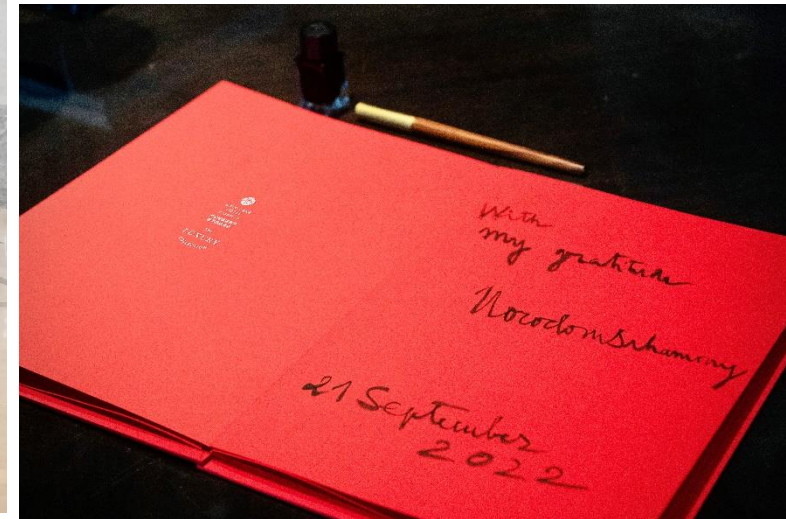 LUXURY
With
my gratitude
Norodom Sihamony
21 September
2022